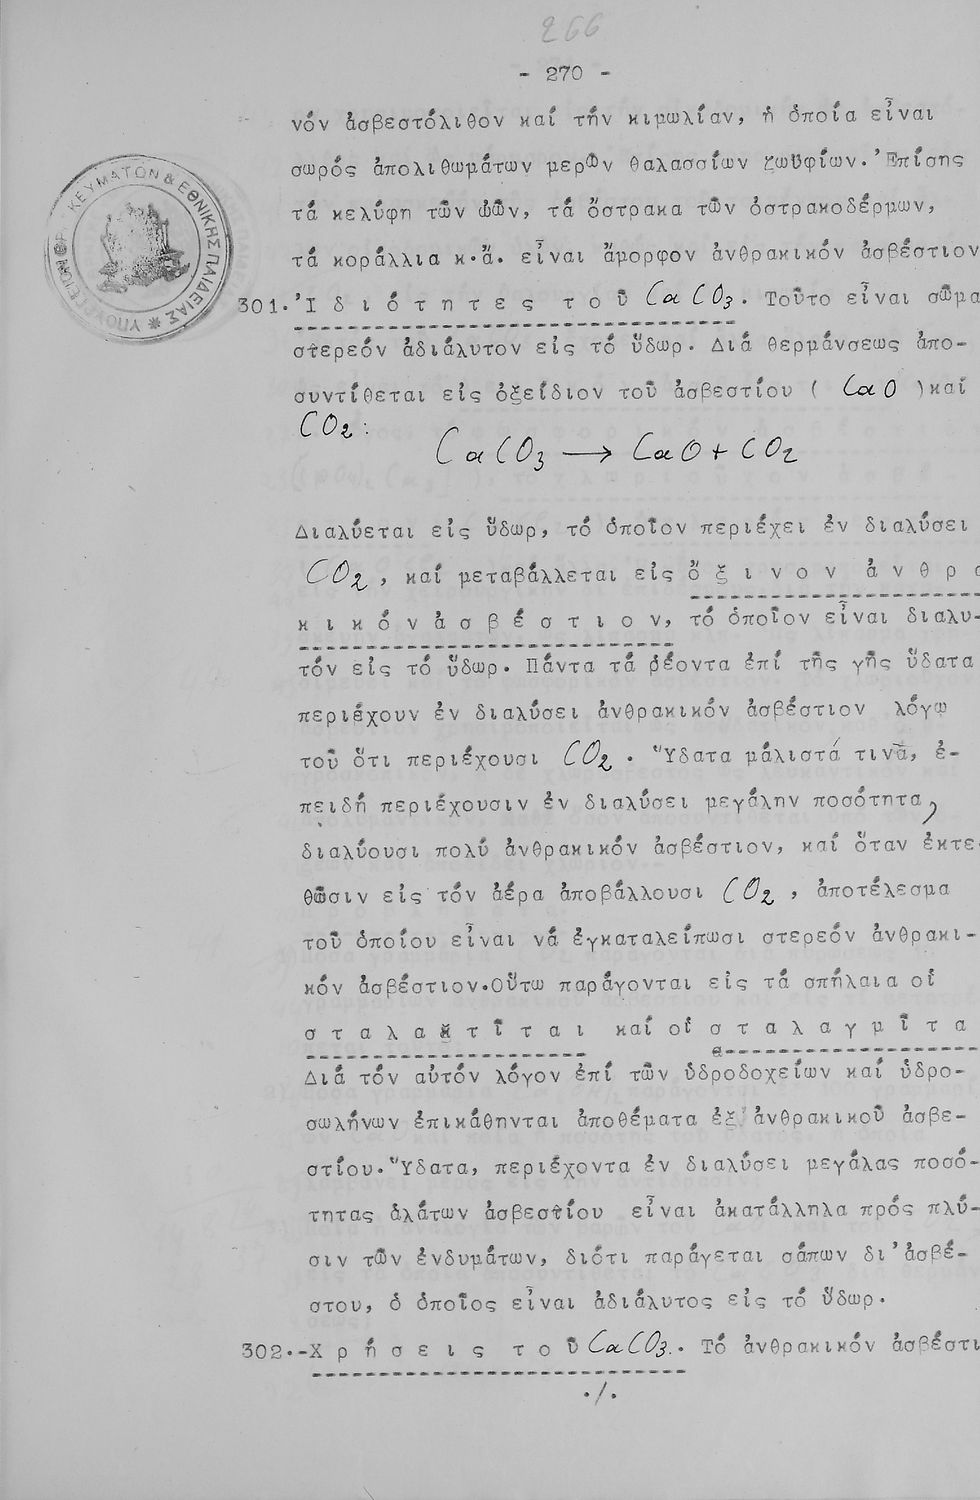 266
- 270 -
νόν ἀσβεστόλιθον καί τήν κιμωλίαν, ἡ ὁποία εἶναι
σωρός ἀπολιθωμάτων μερῶν θαλασσίων ζωϋφίων. Ἐπίσης
τά κελύφη τῶν ὠῶν, τά ὄστρακα τῶν ὀστρακοδέρμων,
τά κοράλλια κ.ἄ. εἶναι ἄμορφον ἀνθρακικόν ἀσβέστιον
301.Ἰ δ ι ό τ η τ ε ς τ ο ῦ CaCO3. Τοῦτο εἶναι σῶμα
στερεόν ἀδιάλυτον εἰς τό ὕδωρ. Διά θερμάνσεως ἀπο-
συντίθεται εἰς ὀξείδιον τοῦ ἀσβεστίου ( CaO ) καί
CO2:
CaCO3 → CaO + CO2
Διαλύεται εἰς ὕδωρ, τό ὁποῖον περιέχει ἐν διαλύσει
CO2, καί μεταβάλλεται εἰς ὄ ξ ι ν ο ν ἀ ν θ ρ α
κ ι κ ό ν ἀ σ β έ σ τ ι ο ν, τό ὁποῖον εἶναι διαλυ-
τόν εἰς τό ὕδωρ. Πάντα τά ῥέοντα ἐπί τῆς γῆς ὕδατα
περιέχουν ἐν διαλύσει ἀνθρακικόν ἀσβέστιον λόγῳ
τοῦ ὅτι περιέχουσι CO2. Ὕδατα μάλιστά τινα, ἐ-
πειδή περιέχουσιν ἐν διαλύσει μεγάλην ποσότητα,
διαλύουσι πολύ ἀνθρακικόν ἀσβέστιον, καί ὅταν ἐκτε-
θῶσιν εἰς τόν ἀέρα ἀποβάλλουσι CO2, ἀποτέλεσμα
τοῦ ὁποίου εἶναι νά ἐγκαταλείπωσι στερεόν ἀνθρακι-
κόν ἀσβέστιον.Οὕτω παράγονται εἰς τά σπήλαια οἱ
σ τ α λ α κ τ ῖ τ α ι καί οἱ σ τ α λ α γ μ ῖ τ α
Διά τόν αὐτόν λόγον ἐπί τῶν ὑδροδοχείων καί ὑδρο-
σωλήνων ἐπικάθηνται ἀποθέματα ἐξ ἀνθρακικοῦ ἀσβε-
στίου. Ὕδατα, περιέχοντα ἐν διαλύσει μεγάλας ποσό-
τητας ἁλάτων ἀσβεστίου εἶναι ἀκατάλληλα πρός πλύ-
σιν τῶν ἐνδυμάτων, διότι παράγεται σάπων δι᾽ἀσβέ-
στου, ὁ ὁποῖος εἶναι ἀδιάλυτος εἰς τό ὕδωρ.
302.-Χ ρ ή σ ε ι ς τ ο ῦ CaCO3. Τό ἀνθρακικόν ἀσβέστι
./.